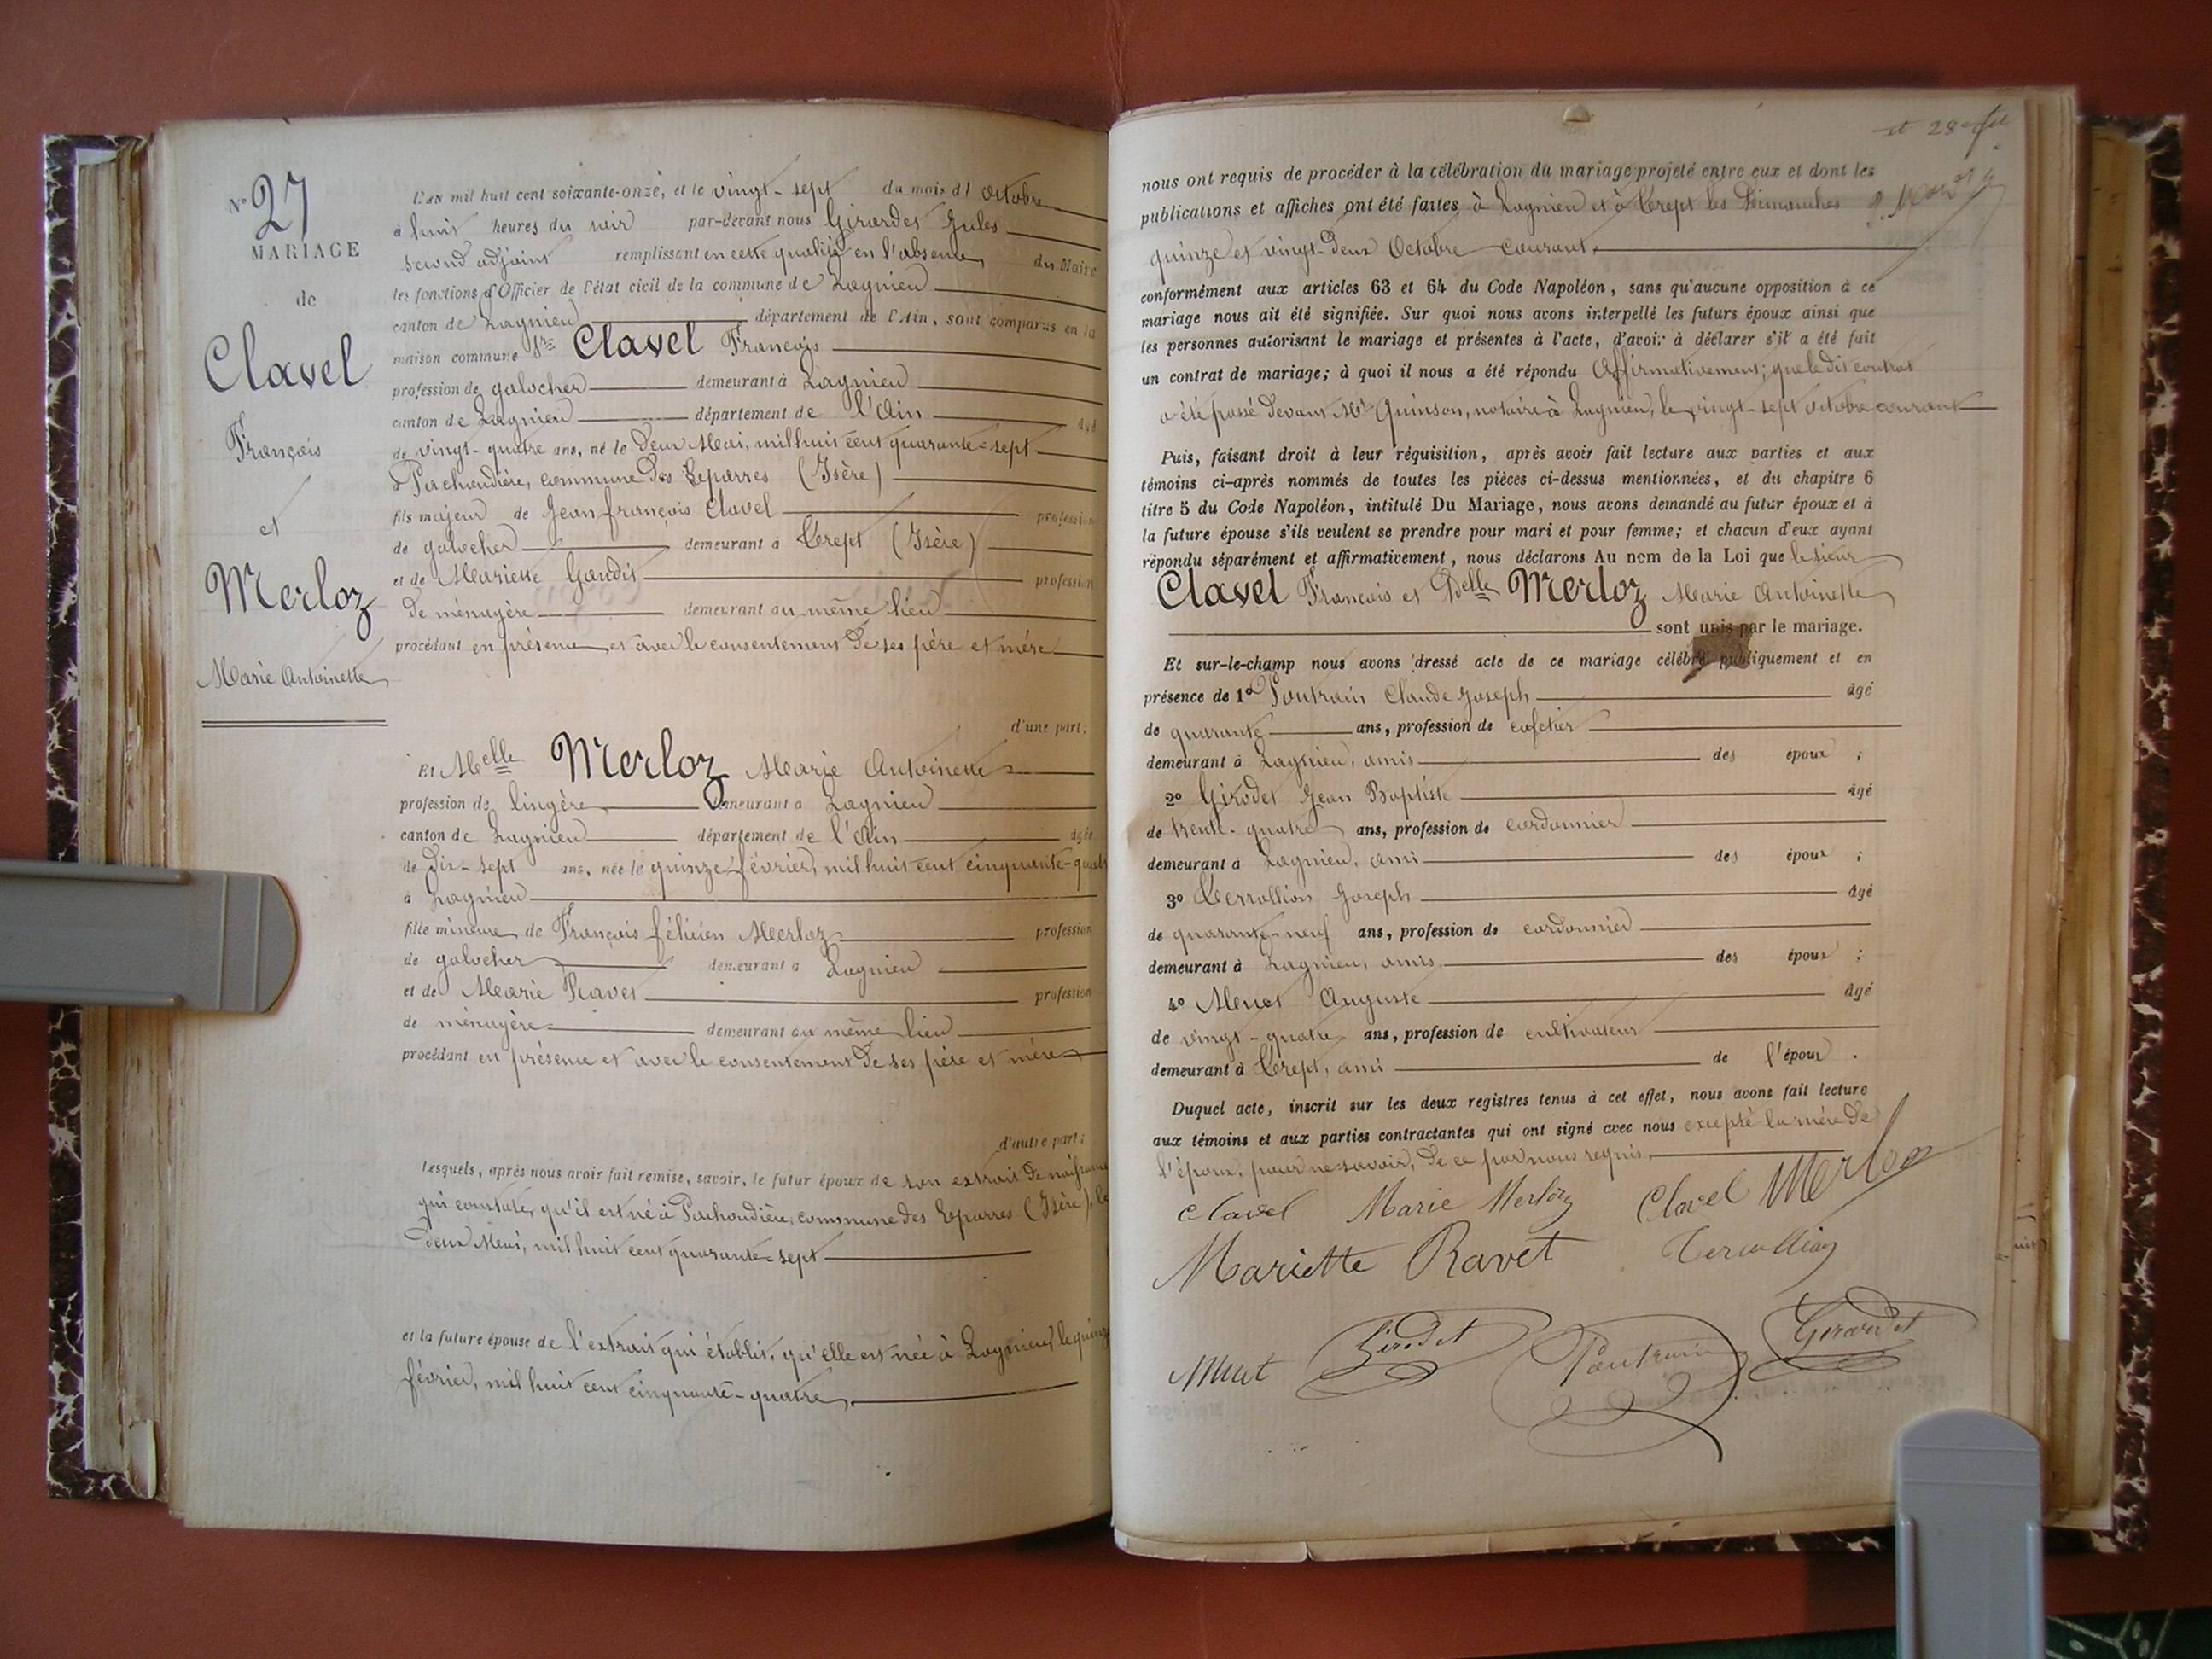 N° 27
MARIAGE
de
Clavel
François
et
Merloz
Marie Antoinette
L'an mil huit cent soixante-onze, et le vingt-sept du mois d' Octobre
à huit heures du soir par-devant nous Girardet Jules
second adjoint remplissant en cette qualité en l'absence du Maire
les fonctions d'Officier de l'état civil de la commune de Lagnieu
canton de Lagnieu département de l'Ain, sont comparus en la
maison commune Sre Clavel François
profession de galocher demeurant à Lagnieu
canton de Lagnieu département de l'Ain âgé
de vingt-quatre ans, né le Deux Mai, mil huit cent quarante-sept
à commune des Eparres (Isère)
fils majeur de Jean françois Clavel profession
de galocher demeurant à Crept (Isère)
et de Mariette Gaudit profession
de ménagère demeurant au même lieu
procédant en présence et avec le consentement de ses père et mère
d'une part;
Et Melle Merloz Marie Antoinette
profession de lingère demeurant à Lagnieu
canton de Lagnieu département de l'Ain âgée
de dix-sept ans, née le quinze février, mil huit cent cinquante-quatre
à Lagnieu
fille mineure de François félicien Merloz profession
de galocher demeurant à Lagnieu
et de Marie Ravet profession
de ménagère demeurant au même lieu
procédant en présence et avec le consentement de ses père et mère
d'autre part;
Lesquels, après nous avoir fait remise, savoir, le futur époux de son extrait de naissance
qui constate, qu'il est né à commune des Eparres (Isère), le
deux Mai, mil huit cent quarante-sept
et la future épouse de l'extrait qui établit, qu'elle est née à Lagnieu, le quinze
février, mil huit cent cinquante-quatre
et 28e
nous ont requis de procéder à la célébration du mariage projeté entre eux et dont les
publications et affiches ont été faites à Lagnieu et à Crept les Dimanches
quinze et vingt-deux Octobre courant
conformément aux articles 63 et 64 du Code Napoléon, sans qu'aucune opposition à ce
mariage nous ait été signifiée. Sur quoi nous avons interpellé les futurs époux ainsi que
les personnes autorisant le mariage et présentes à l'acte, d'avoir à déclarer s'il a été fait
un contrat de mariage; à quoi il nous a été répondu Affirmativement; que le dit contrat
a été passé devant Me Quinson, notaire à Lagnieu, le vingt-sept octobre courant
Puis, faisant droit à leur réquisition, après avoir fait lecture aux parties et aux
témoins ci-après nommés de toutes les pièces ci-dessus mentionnées, et du chapitre 6
titre 5 du Code Napoléon, intitulé Du Mariage, nous avons demandé au futur époux et à
la future épouse s'ils veulent se prendre pour mari et pour femme; et chacun d'eux ayant
répondu séparément et affirmativement, nous déclarons Au nom de la Loi que le sieur
Clavel François et Delle Merloz Marie Antoinette
sont unis par le mariage.
Et sur-le-champ nous avons dressé acte de ce mariage célébré publiquement et en
présence de 1° Poutrain Claude Joseph âgé
de quarante ans, profession de cafetier
demeurant à Lagnieu, amis des époux ;
2° Girodet Jean Baptiste âgé
de trente-quatre ans, profession de cordonnier
demeurant à Lagnieu, ami des époux ;
3° Joseph âgé
de quarante-neuf ans, profession de cordonnier
demeurant à Lagnieu, amis des époux ;
4° Auguste âgé
de vingt-quatre ans, profession de cultivateur
demeurant à Crept, ami de l'époux .
Duquel acte, inscrit sur les deux registres tenus à cet effet, nous avons fait lecture
aux témoins et aux parties contractantes qui ont signé avec nous excepté la mère de
l'époux, pour ne savoir, de ce par nous requis.
Clavel Marie Merloz Clavel Merloz
Mariette Ravet
Girodet Poutrain Girardet